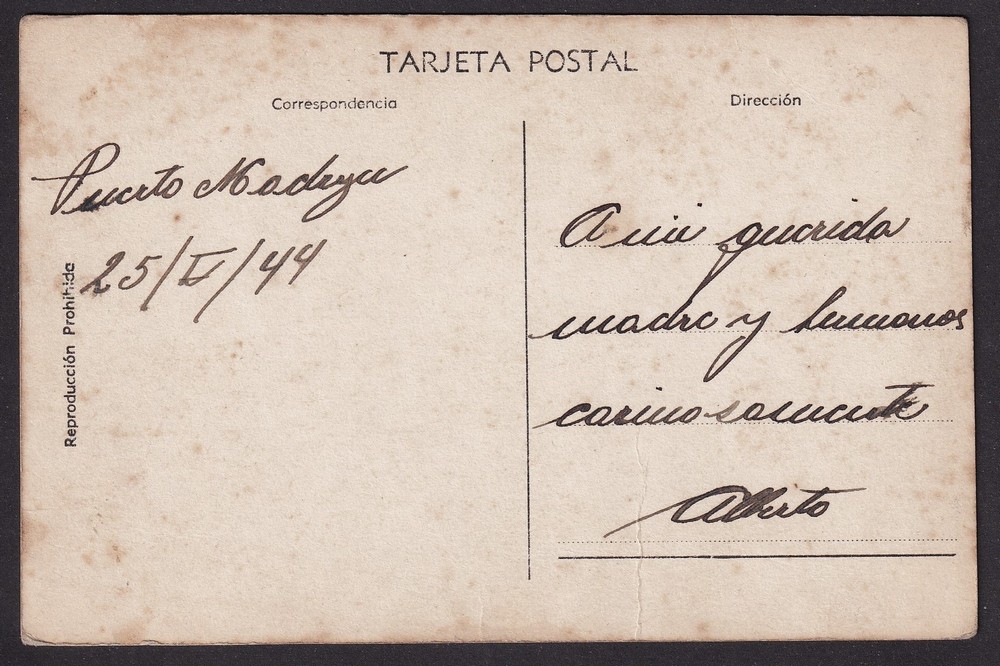 TARJETA POSTAL
Correspondencia
Dirección
Puerto Madryn
25/V/44
Reproducción Prohibida
A mi querida
madre y hermanos
carinosamente
Alberto